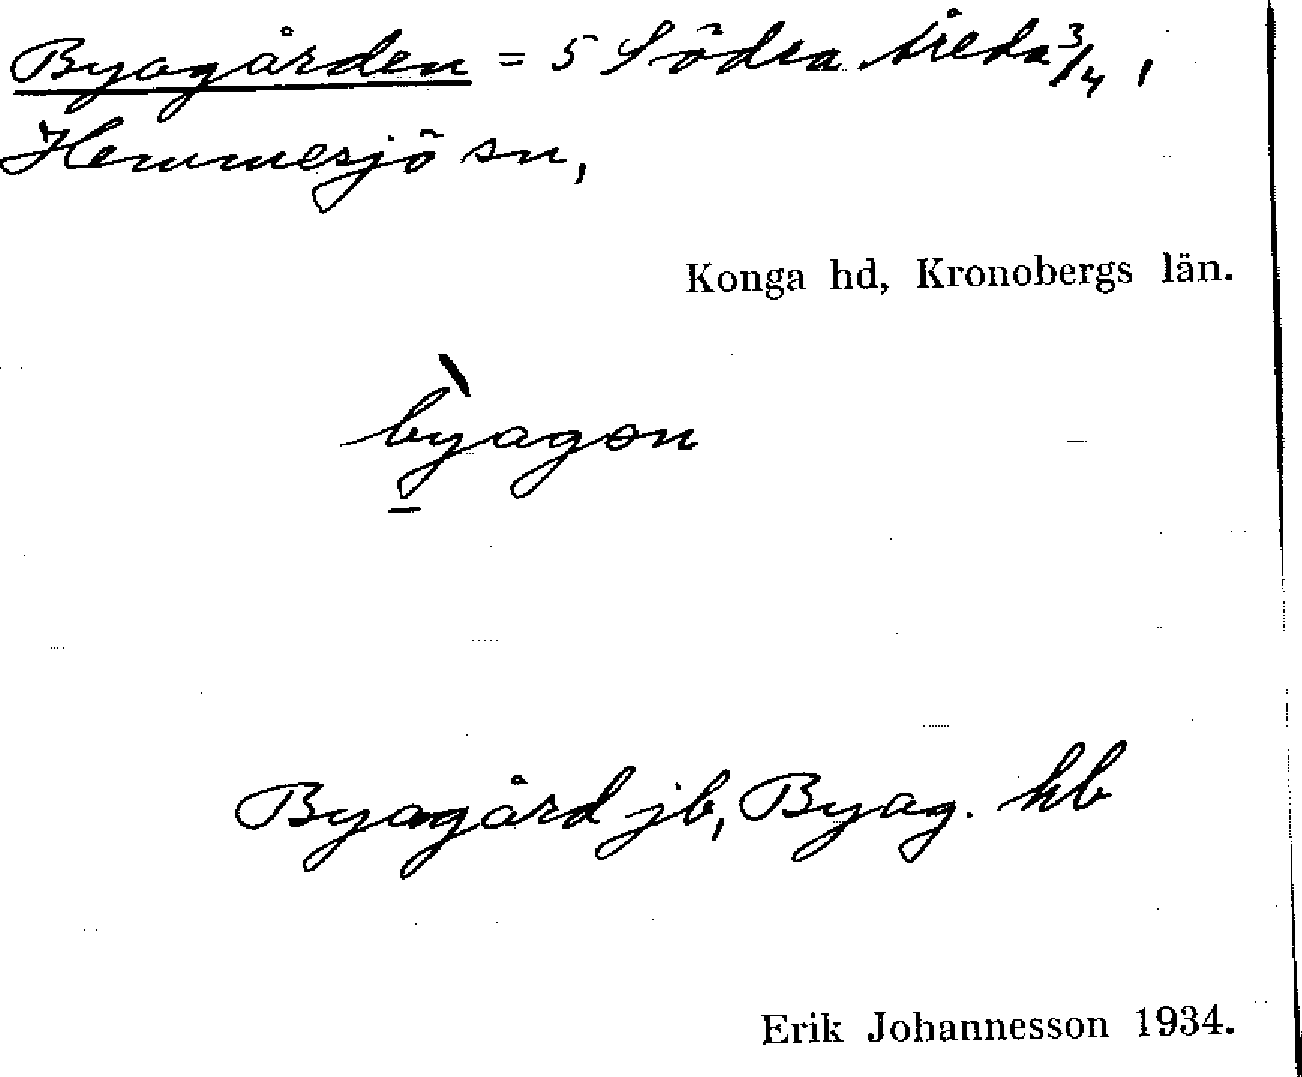 Byagården = 5 Södra Åreda 3/4,
Hemmesjö sn,
Konga hd, Kronobergs län.
b̀y̱agon
Byagård jb, Byag. hb
Erik Johannesson 1934.